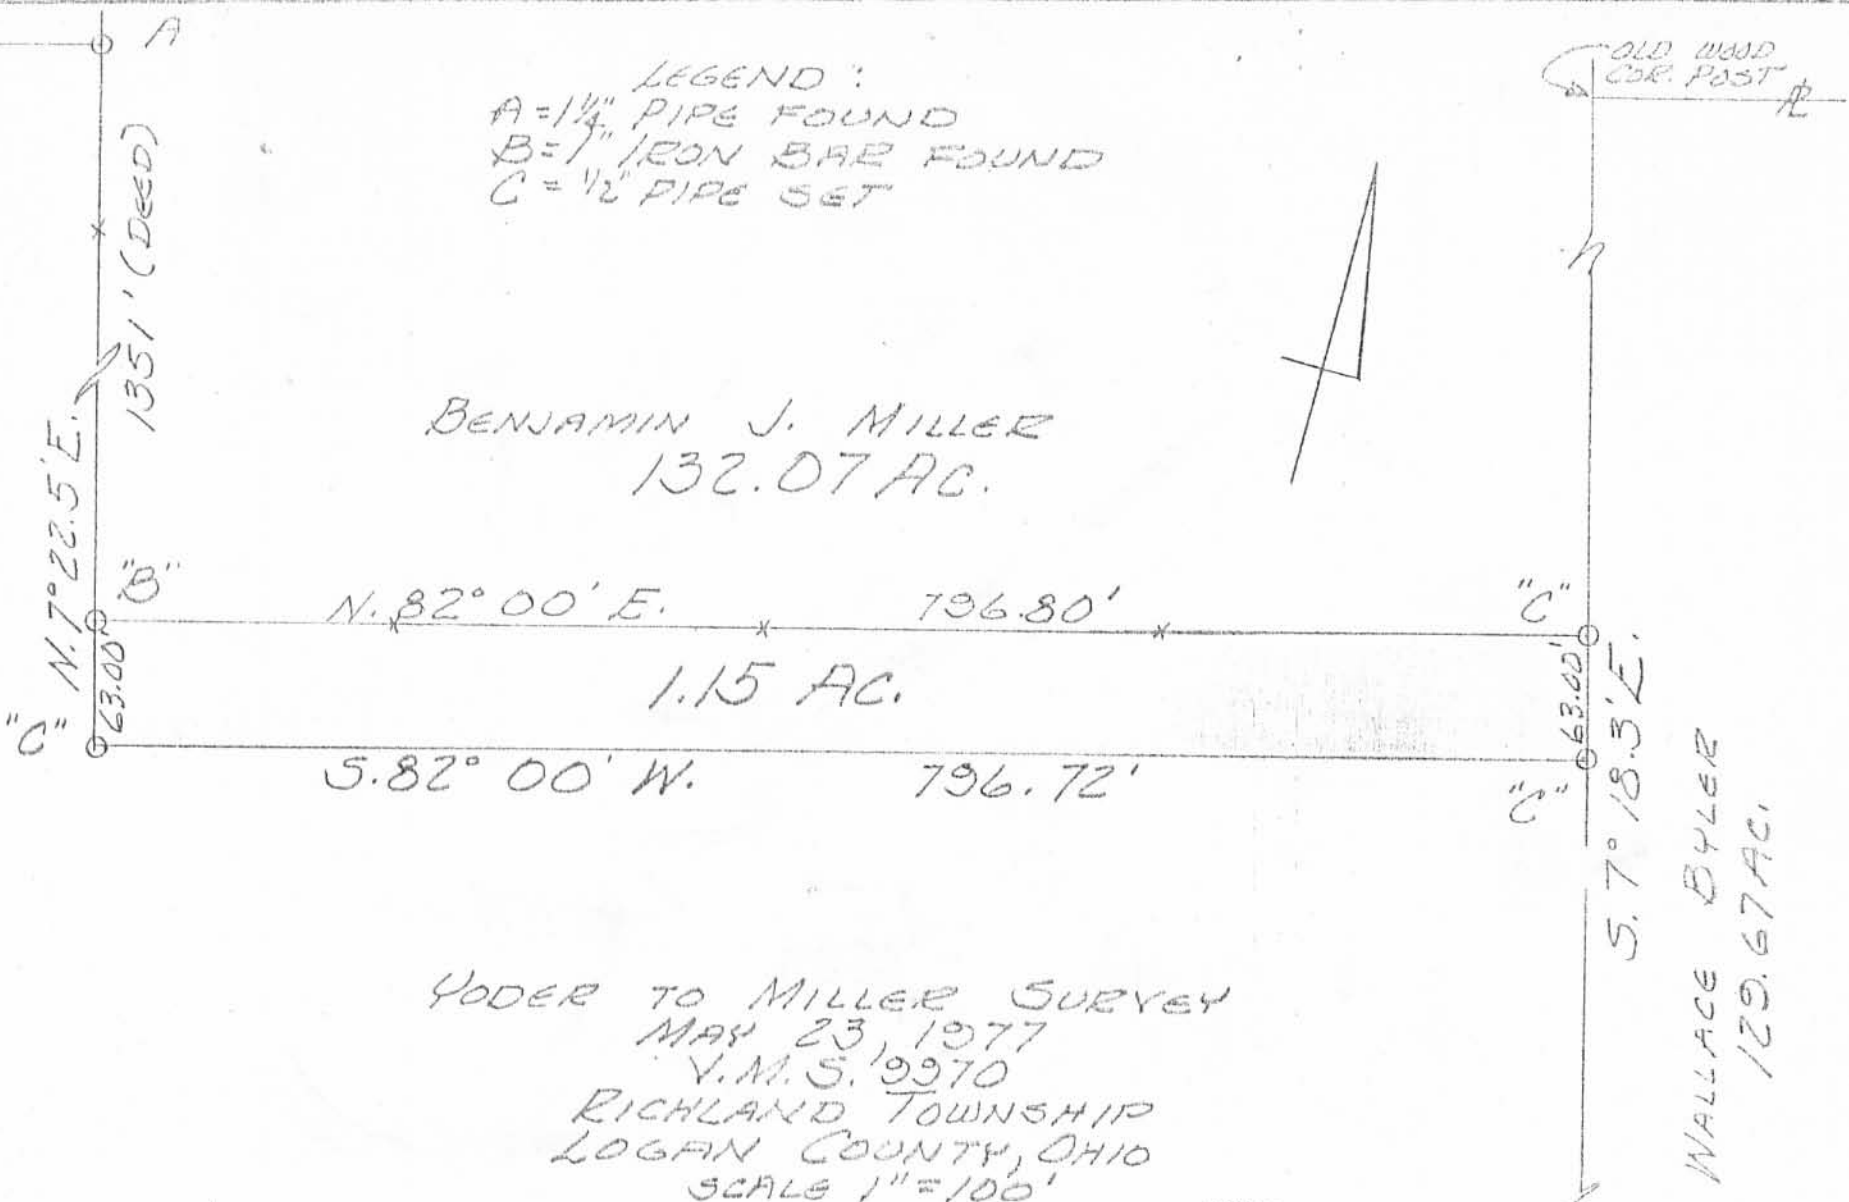 A
OLD WOOD
COR. POST
LEGEND:
A = 1¼" PIPE FOUND
B = 1" IRON BAR FOUND
C = ½" PIPE SET
1351' (DEED)
BENJAMIN J. MILLER
132.07 AC.
N. 7° 22.5' E.
"B"
N. 82° 00' E. 796.80'
"C"
63.00'
1.15 AC.
63.00'
"C"
S. 82° 00' W. 796.72'
"C"
S. 7° 18.3' E.
WALLACE BYLER
129.67 AC.
YODER TO MILLER SURVEY
MAY 23, 1977
V.M.S. 9970
RICHLAND TOWNSHIP
LOGAN COUNTY, OHIO
SCALE 1" = 100'